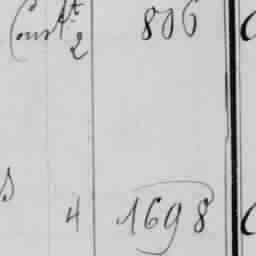 Const 2 806
4 1698